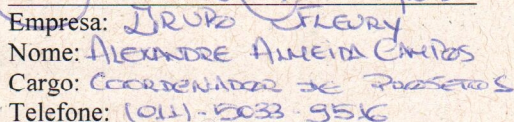 Empresa: GRUPO FLEURY
Nome: ALEXANDRE ALMEIDA CAMPOS
Cargo: COORDENADOR DE PROJETOS
Telefone: (011) - 5033 - 9516